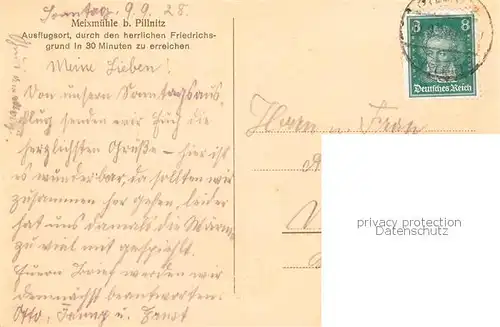 Sonntag, 9.9.28.
Meixmühle b. Pillnitz
Ausflugsort, durch den herrlichen Friedrichs-
grund in 30 Minuten zu erreichen
Meine Lieben!
Von unsern Sonntagsaus-
flug senden wir Euch die
herzlichsten Grüße – hier ist
es wunderbar, da sollten wir
zusammen her gehen, leider
hat uns damals die Wärme
zu viel mit gespielt.
Euern Brief werden wir
demnächst beantworten.
Otto, u. Horst
8 8
Deutsches Reich
Herrn u. Frau
privacy protection
Datenschutz